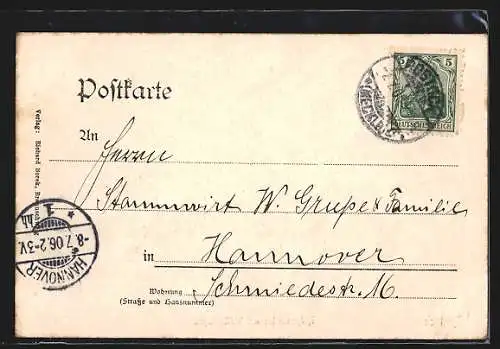 Postkarte
5 5
DEUTSCHES REICH
An
Herrn
Stammwirt W. Grupe & Familie
in Hannover
Wohnung
(Straße und Hausnummer)
Schmiedestr.
Verlag: Richard
HANNOVER
-8.7.06.2-3V.
* 1 *